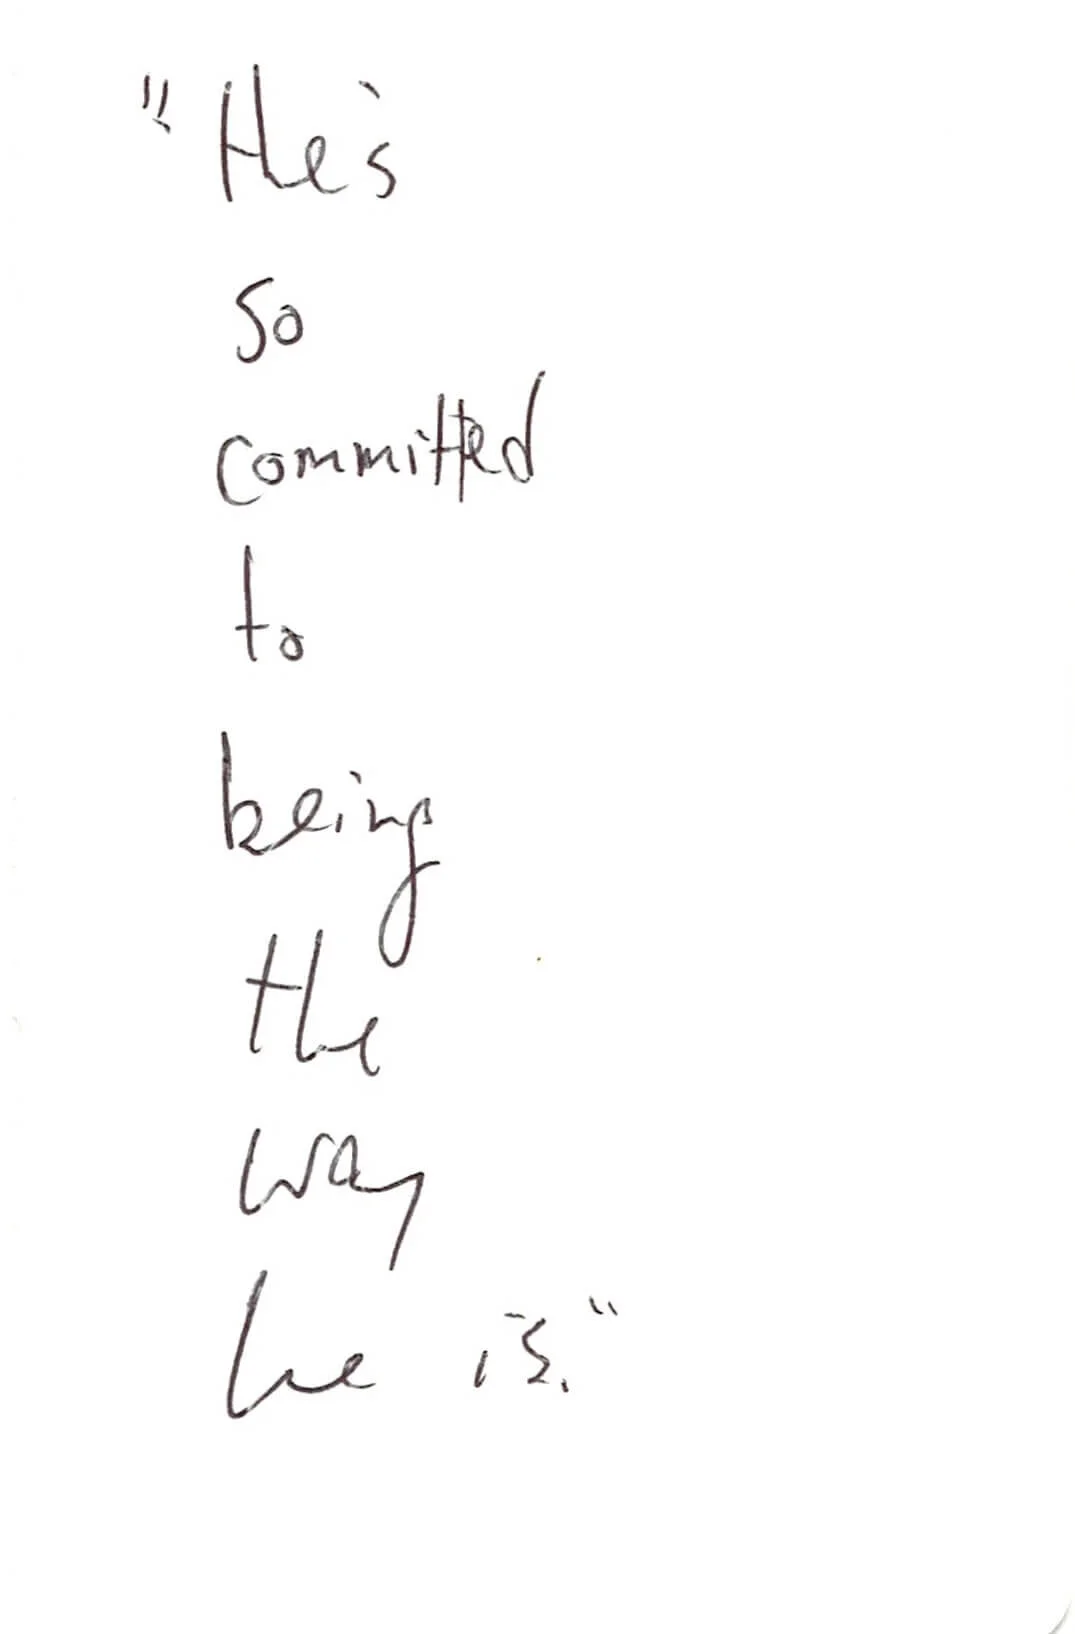 "He's
so
committed
to
being
the
way
he is."